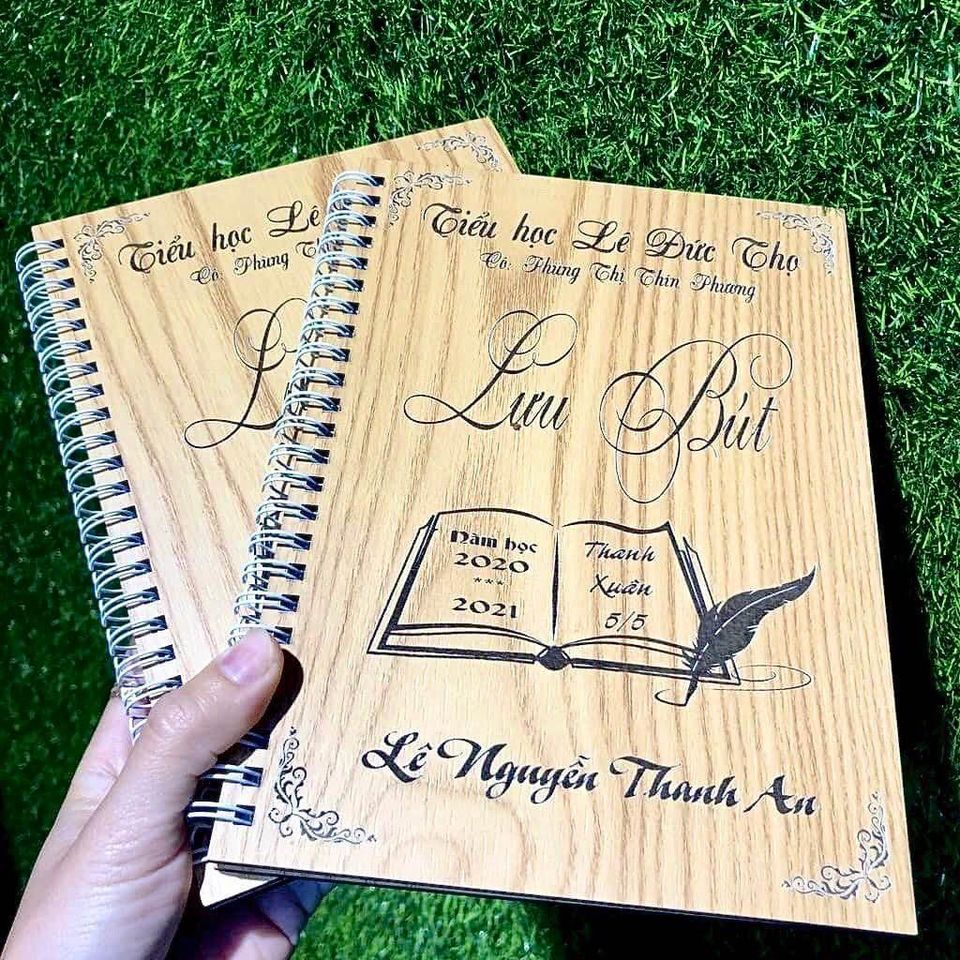 Tiểu học Lê
Cô: Phùng T
L
Tiểu học Lê Đức Thọ
Cô: Phùng Thị Thìn Phương
Lưu Bút
Năm học
2020
***
2021
Thanh
Xuân
5/5
Lê Nguyễn Thanh An